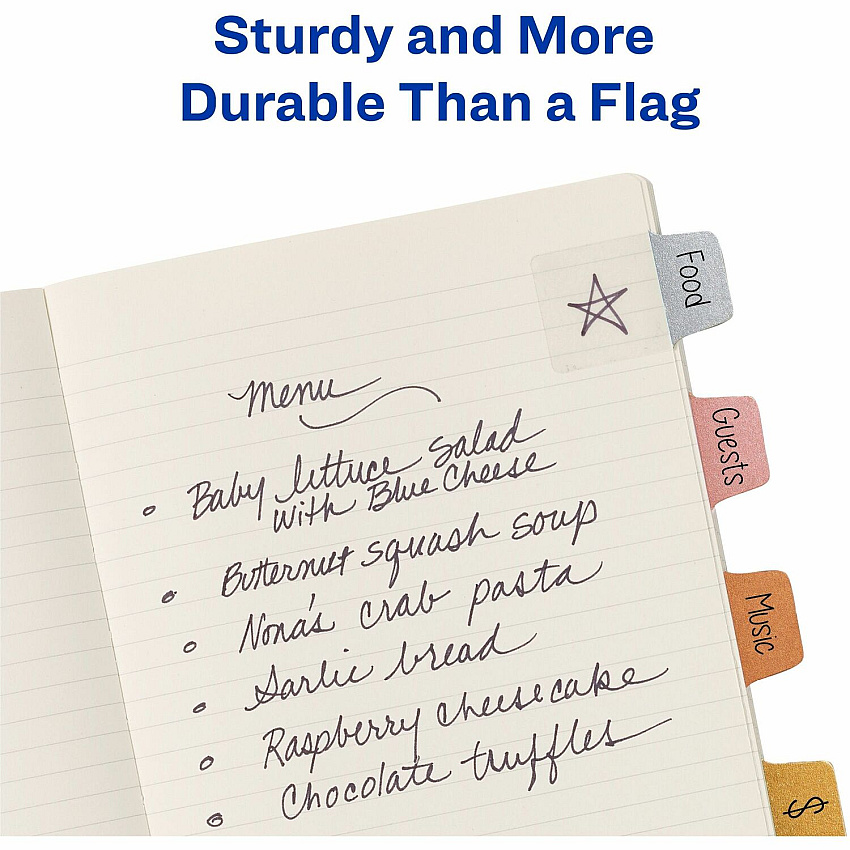 Sturdy and More
Durable Than a Flag
Food
Menu
Guests
Baby lettuce salad
with Blue Cheese
Butternut squash soup
Nona's crab pasta
Garlic bread
Music
Raspberry cheesecake
Chocolate truffles
$